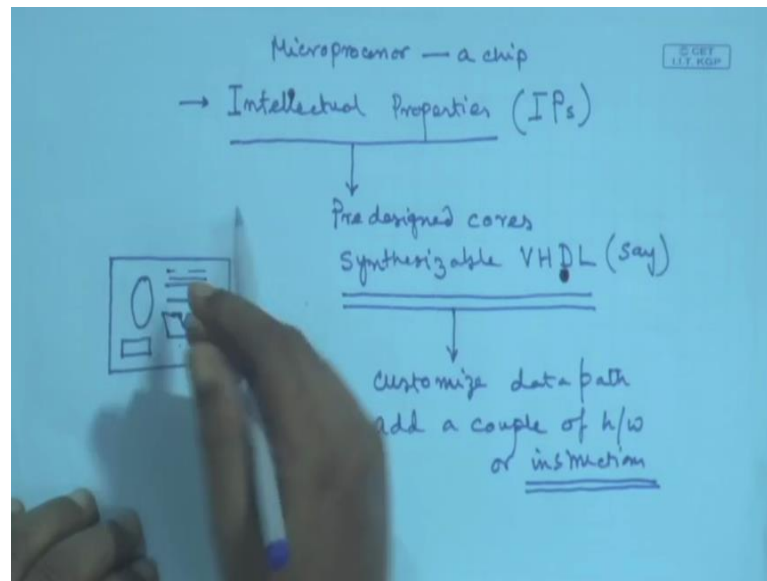 Microprocessor — a chip
© CET
I.I.T. KGP
→ Intellectual Properties (IPs)
Predesigned cores
Synthesizable VHDL (say)
customize data path
add a couple of h/w
or instruction